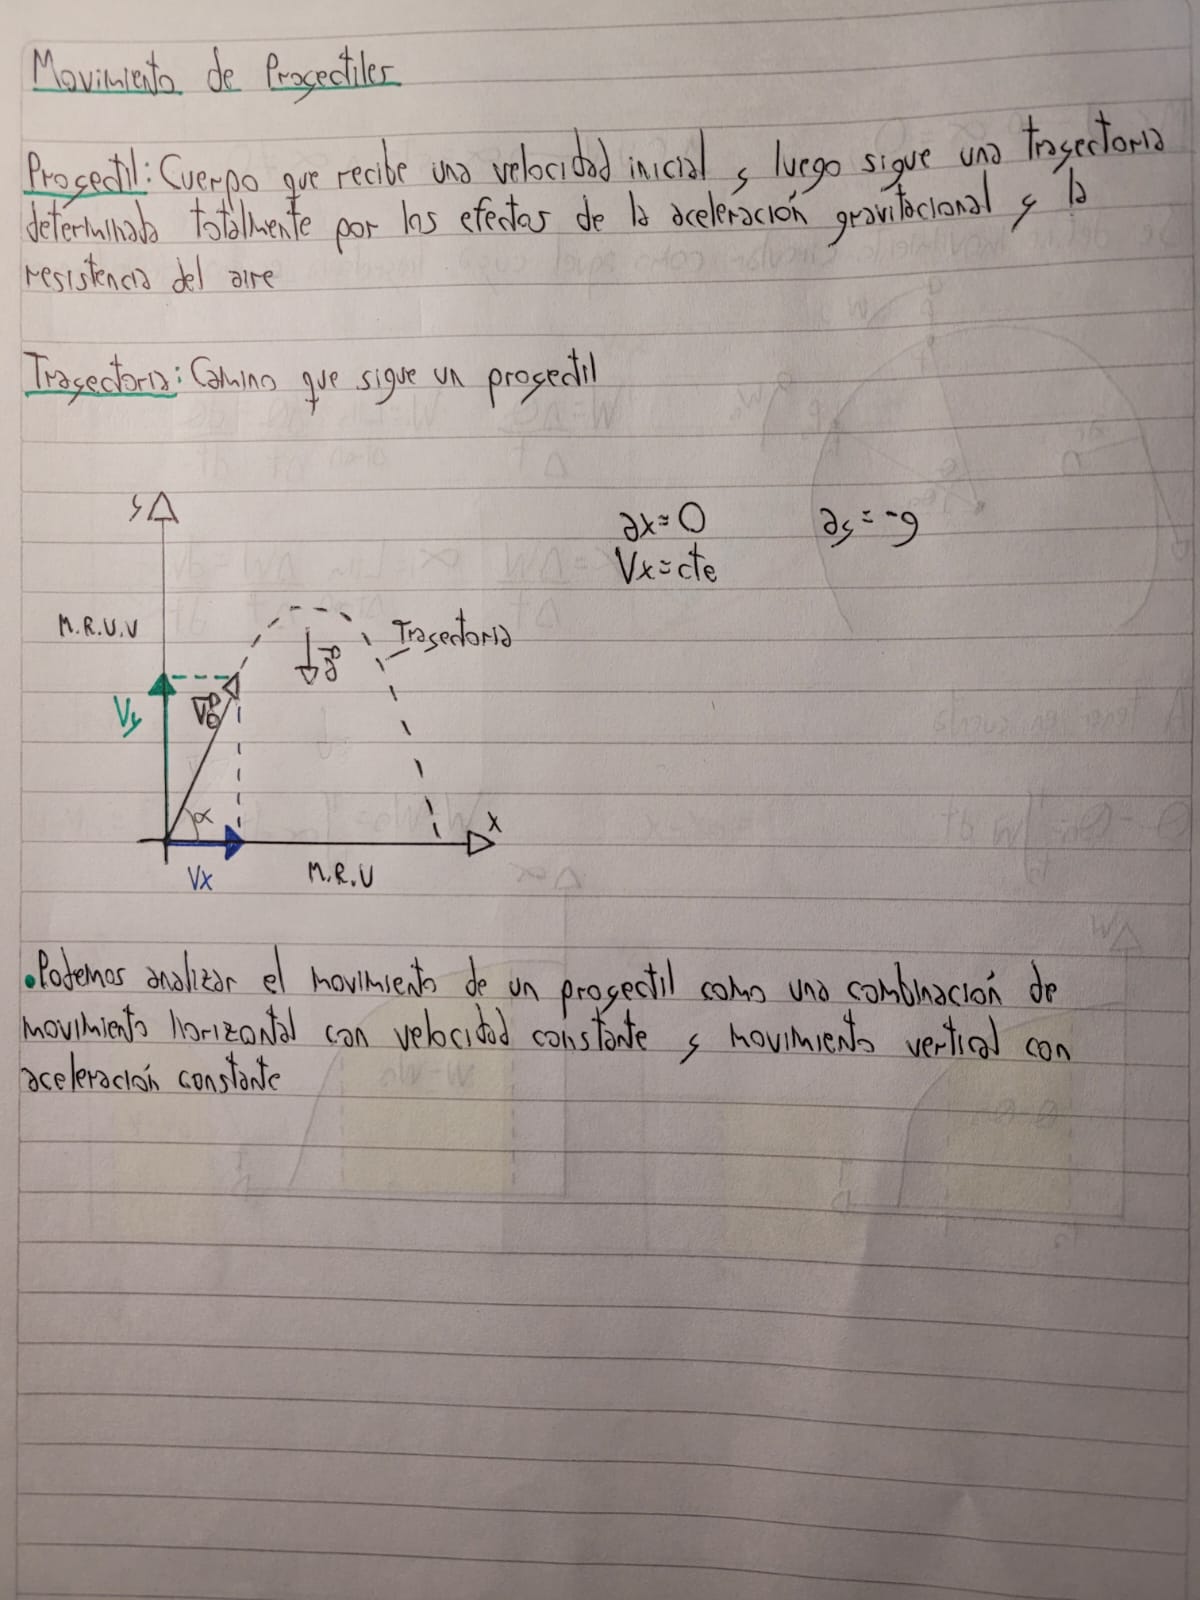 Movimiento de Proyectiles
Proyectil: Cuerpo que recibe una velocidad inicial y luego sigue una trayectoria
determinada totalmente por los efectos de la aceleración gravitacional y la
resistencia del aire
Trayectoria: Camino que sigue un proyectil
y
ax=0
ay=-g
Vx=cte
M.R.U.V
Trayectoria
g
Vy
Vo
α
x
Vx
M.R.U
•Podemos analizar el movimiento de un proyectil como una combinación de
movimiento horizontal con velocidad constante y movimiento vertical con
aceleración constante